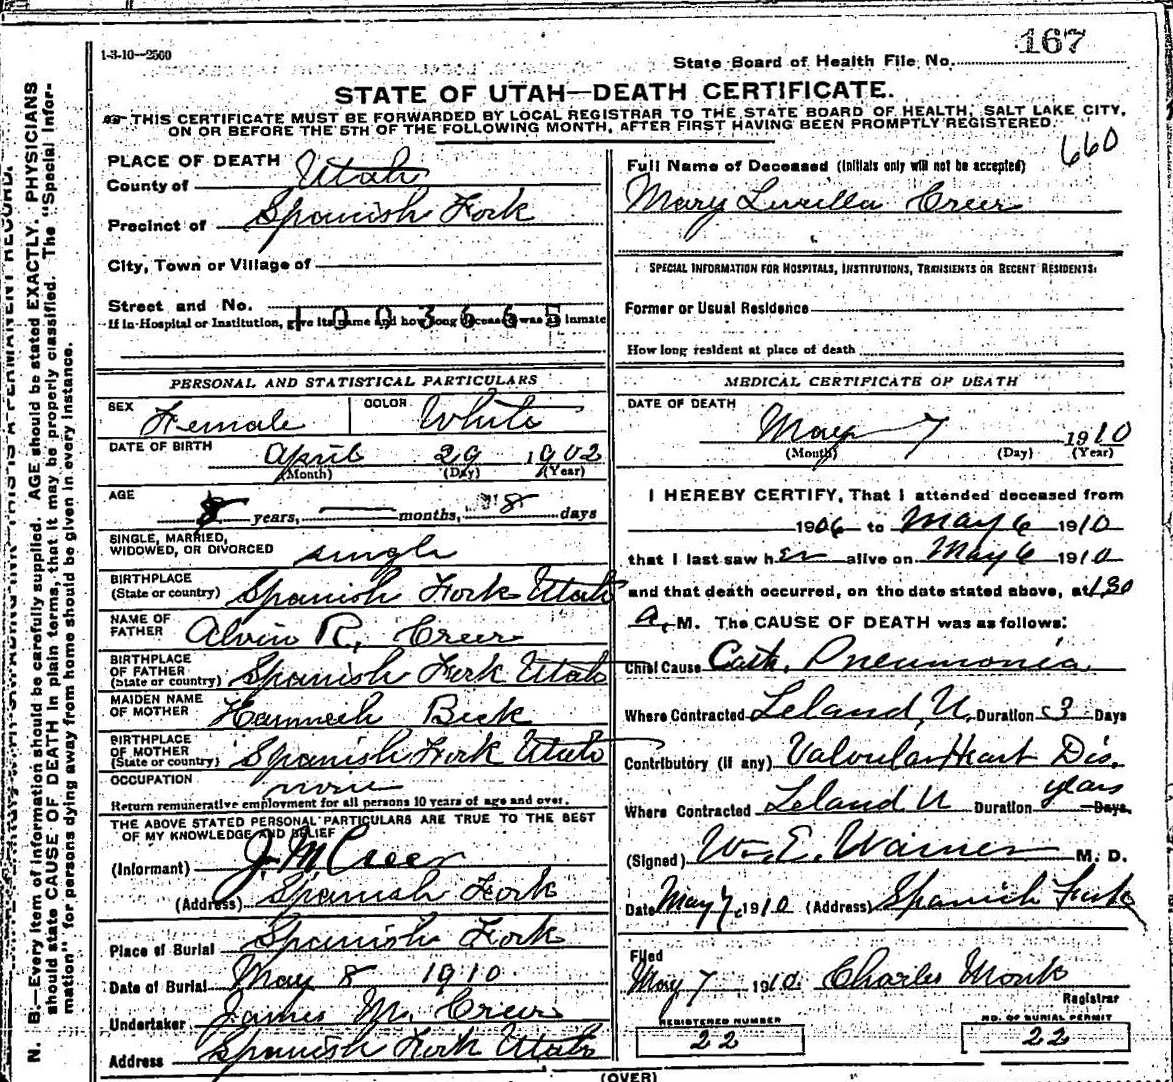 1-3-10—2500
167
State Board of Health File No.
STATE OF UTAH—DEATH CERTIFICATE.
THIS CERTIFICATE MUST BE FORWARDED BY LOCAL REGISTRAR TO THE STATE BOARD OF HEALTH, SALT LAKE CITY,
ON OR BEFORE THE 5TH OF THE FOLLOWING MONTH, AFTER FIRST HAVING BEEN PROMPTLY REGISTERED.
660
N. B.—Every item of information should be carefully supplied. AGE should be stated EXACTLY. PHYSICIANS
should state CAUSE OF DEATH in plain terms, that it may be properly classified. The "Special Infor-
mation" for persons dying away from home should be given in every instance.
PLACE OF DEATH
County of Utah
Precinct of Spanish Fork
City, Town or Village of
Street and No.
1003665
If in Hospital or Institution, give its name and how long deceased was an inmate
PERSONAL AND STATISTICAL PARTICULARS
SEX Female COLOR White
DATE OF BIRTH April 29 1902
(Month) (Day) (Year)
AGE
8 years, months, 8 days
SINGLE, MARRIED,
WIDOWED, OR DIVORCED single
BIRTHPLACE
(State or country) Spanish Fork Utah
NAME OF
FATHER Alvin R. Creer
BIRTHPLACE
OF FATHER
(State or country) Spanish Fork Utah
MAIDEN NAME
OF MOTHER Hannah Beck
BIRTHPLACE
OF MOTHER
(State or country) Spanish Fork Utah
OCCUPATION none
Return remunerative employment for all persons 10 years of age and over.
THE ABOVE STATED PERSONAL PARTICULARS ARE TRUE TO THE BEST
OF MY KNOWLEDGE AND BELIEF
(Informant) J. M. Creer
(Address) Spanish Fork
Place of Burial Spanish Fork
Date of Burial May 8 1910.
Undertaker James M. Creer
Address Spanish Fork Utah
Full Name of Deceased (Initials only will not be accepted)
Mary Luvilla Creer
SPECIAL INFORMATION FOR HOSPITALS, INSTITUTIONS, TRANSIENTS OR RECENT RESIDENTS:
Former or Usual Residence
How long resident at place of death
MEDICAL CERTIFICATE OF DEATH
DATE OF DEATH
May 7 1910
(Month) (Day) (Year)
I HEREBY CERTIFY, That I attended deceased from
1906 to May 6 1910
that I last saw her alive on May 6 1910
and that death occurred, on the date stated above, at 1.30
A. M. The CAUSE OF DEATH was as follows:
Chief Cause Cath. Pneumonia
Where Contracted Leland, U. Duration 3 Days
Contributory (if any) Valvular Heart Dis.
Where Contracted Leland U Duration years Days.
(Signed) Wm. E. Warner M. D.
Date May 7, 1910 (Address) Spanish Fork
Filed
May 7 1910. Charles Monk
Registrar
REGISTERED NUMBER
22
NO. OF BURIAL PERMIT
22
(OVER)